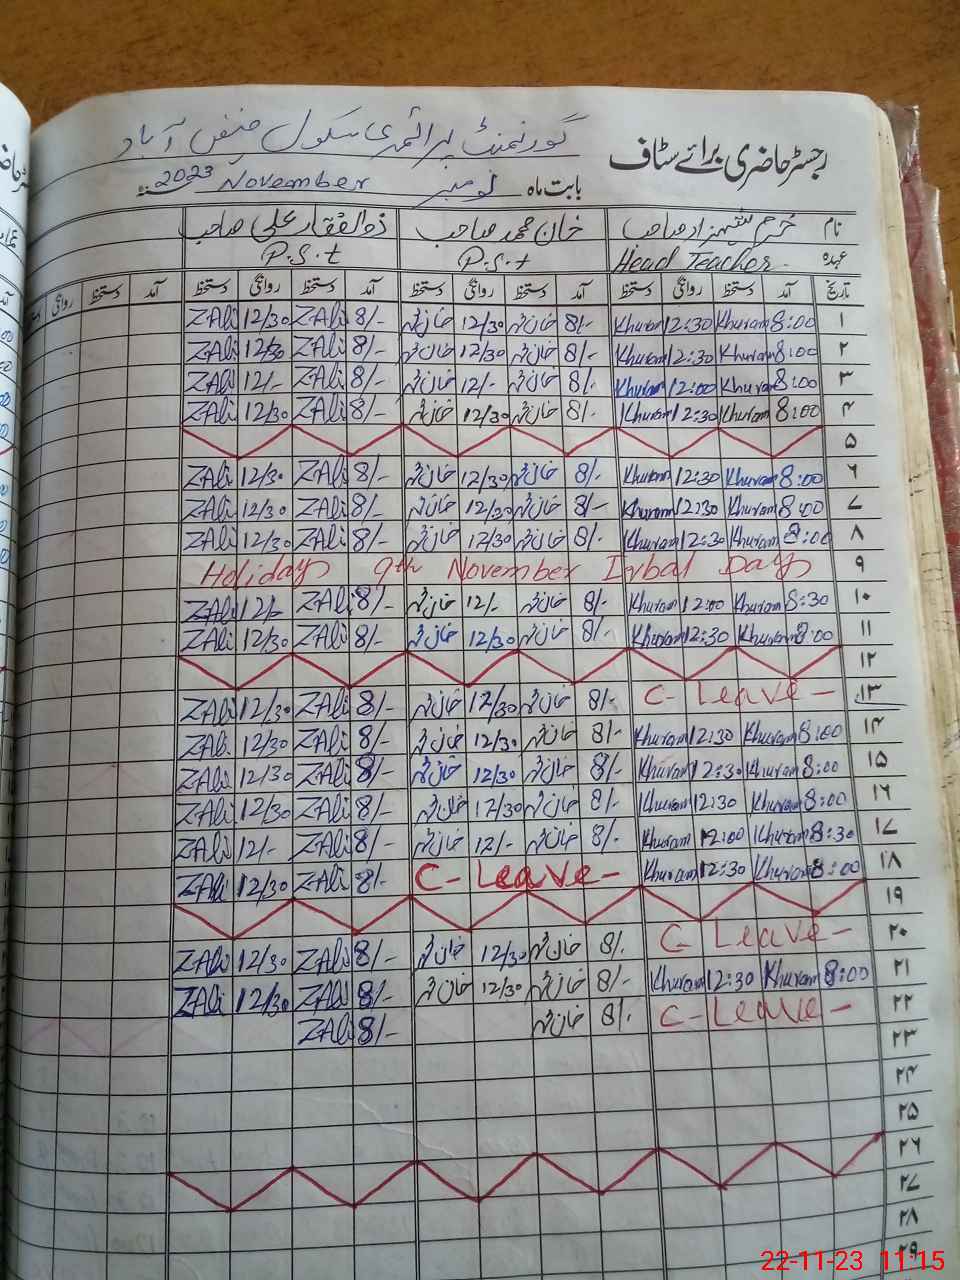 گورنمنٹ پرائمری سکول فیض آباد
رجسٹر حاضری برائے سٹاف
بابت ماہ نومبر November 2023
نام خرم شہزاد صاحب خان محمد صاحب ذوالفقار علی صاحب
عہدہ Head Teacher P.S.t P.S.t
تاریخ آمد دستخط روانگی دستخط آمد دستخط روانگی دستخط آمد دستخط روانگی دستخط آمد دستخط روانگی
۱ 8:00 Khuram 12:30 Khuram 8/- خان محمد 12/30 خان محمد 8/- ZAli 12/30 ZAli
۲ 8:00 Khuram 12:30 Khuram 8/- خان محمد 12/30 خان محمد 8/- ZAli 12/30 ZAli
۳ 8:00 Khuram 12:00 Khuram 8/- خان محمد 12/- خان محمد 8/- ZAli 12/- ZAli
۴ 8:00 Khuram 12:30 Khuram 8/- خان محمد 12/30 خان محمد 8/- ZAli 12/30 ZAli
۵
۶ 8:00 Khuram 12:30 Khuram 8/- خان محمد 12/30 خان محمد 8/- ZAli 12/30 ZAli
۷ 8:00 Khuram 12:30 Khuram 8/- خان محمد 12/30 خان محمد 8/- ZAli 12/30 ZAli
۸ 8:00 Khuram 12:30 Khuram 8/- خان محمد 12/30 خان محمد 8/- ZAli 12/30 ZAli
۹ Holiday 9th November Iqbal Day
۱۰ 8:30 Khuram 12:00 Khuram 8/- خان محمد 12/- خان محمد 8/- ZAli 12/- ZAli
۱۱ 8:00 Khuram 12:30 Khuram 8/- خان محمد 12/30 خان محمد 8/- ZAli 12/30 ZAli
۱۲
۱۳ C-Leave- 8/- خان محمد 12/30 خان محمد 8/- ZAli 12/30 ZAli
۱۴ 8:00 Khuram 12:30 Khuram 8/- خان محمد 12/30 خان محمد 8/- ZAli 12/30 ZAli
۱۵ 8:00 Khuram 12:30 Khuram 8/- خان محمد 12/30 خان محمد 8/- ZAli 12/30 ZAli
۱۶ 8:00 Khuram 12:30 Khuram 8/- خان محمد 12/30 خان محمد 8/- ZAli 12/30 ZAli
۱۷ 8:30 Khuram 12:00 Khuram 8/- خان محمد 12/- خان محمد 8/- ZAli 12/- ZAli
۱۸ 8:00 Khuram 12:30 Khuram C-Leave- 8/- ZAli 12/30 ZAli
۱۹
۲۰ C-Leave- 8/- خان محمد 12/30 خان محمد 8/- ZAli 12/30 ZAli
۲۱ 8:00 Khuram 12:30 Khuram 8/- خان محمد 12/30 خان محمد 8/- ZAli 12/30 ZAli
۲۲ C-Leave- 8/- خان محمد 8/- ZAli
۲۳
۲۴
۲۵
۲۶
۲۷
۲۸
۲۹
22-11-23 11:15